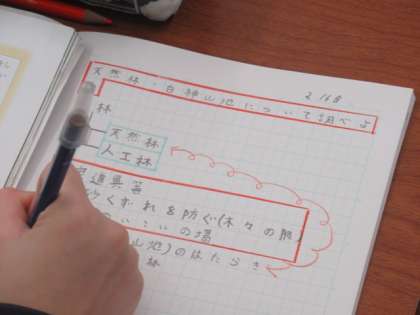 2 16日
天然林・白神山地について調べよ
林
天然林
人工林
道具
くずれを防ぐ(木々の
いこいの場
山地)のはたらき
林